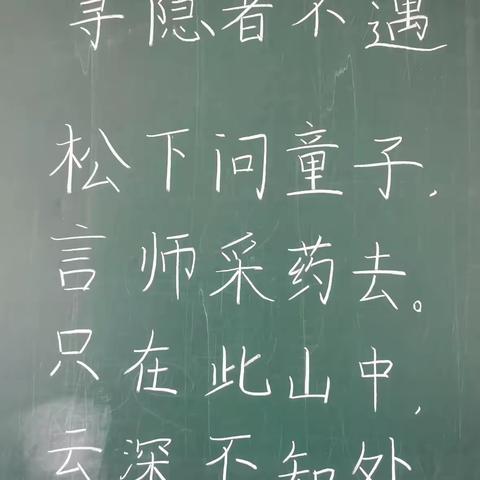 寻隐者不遇
松下问童子，
言师采药去。
只在此山中，
云深不知处